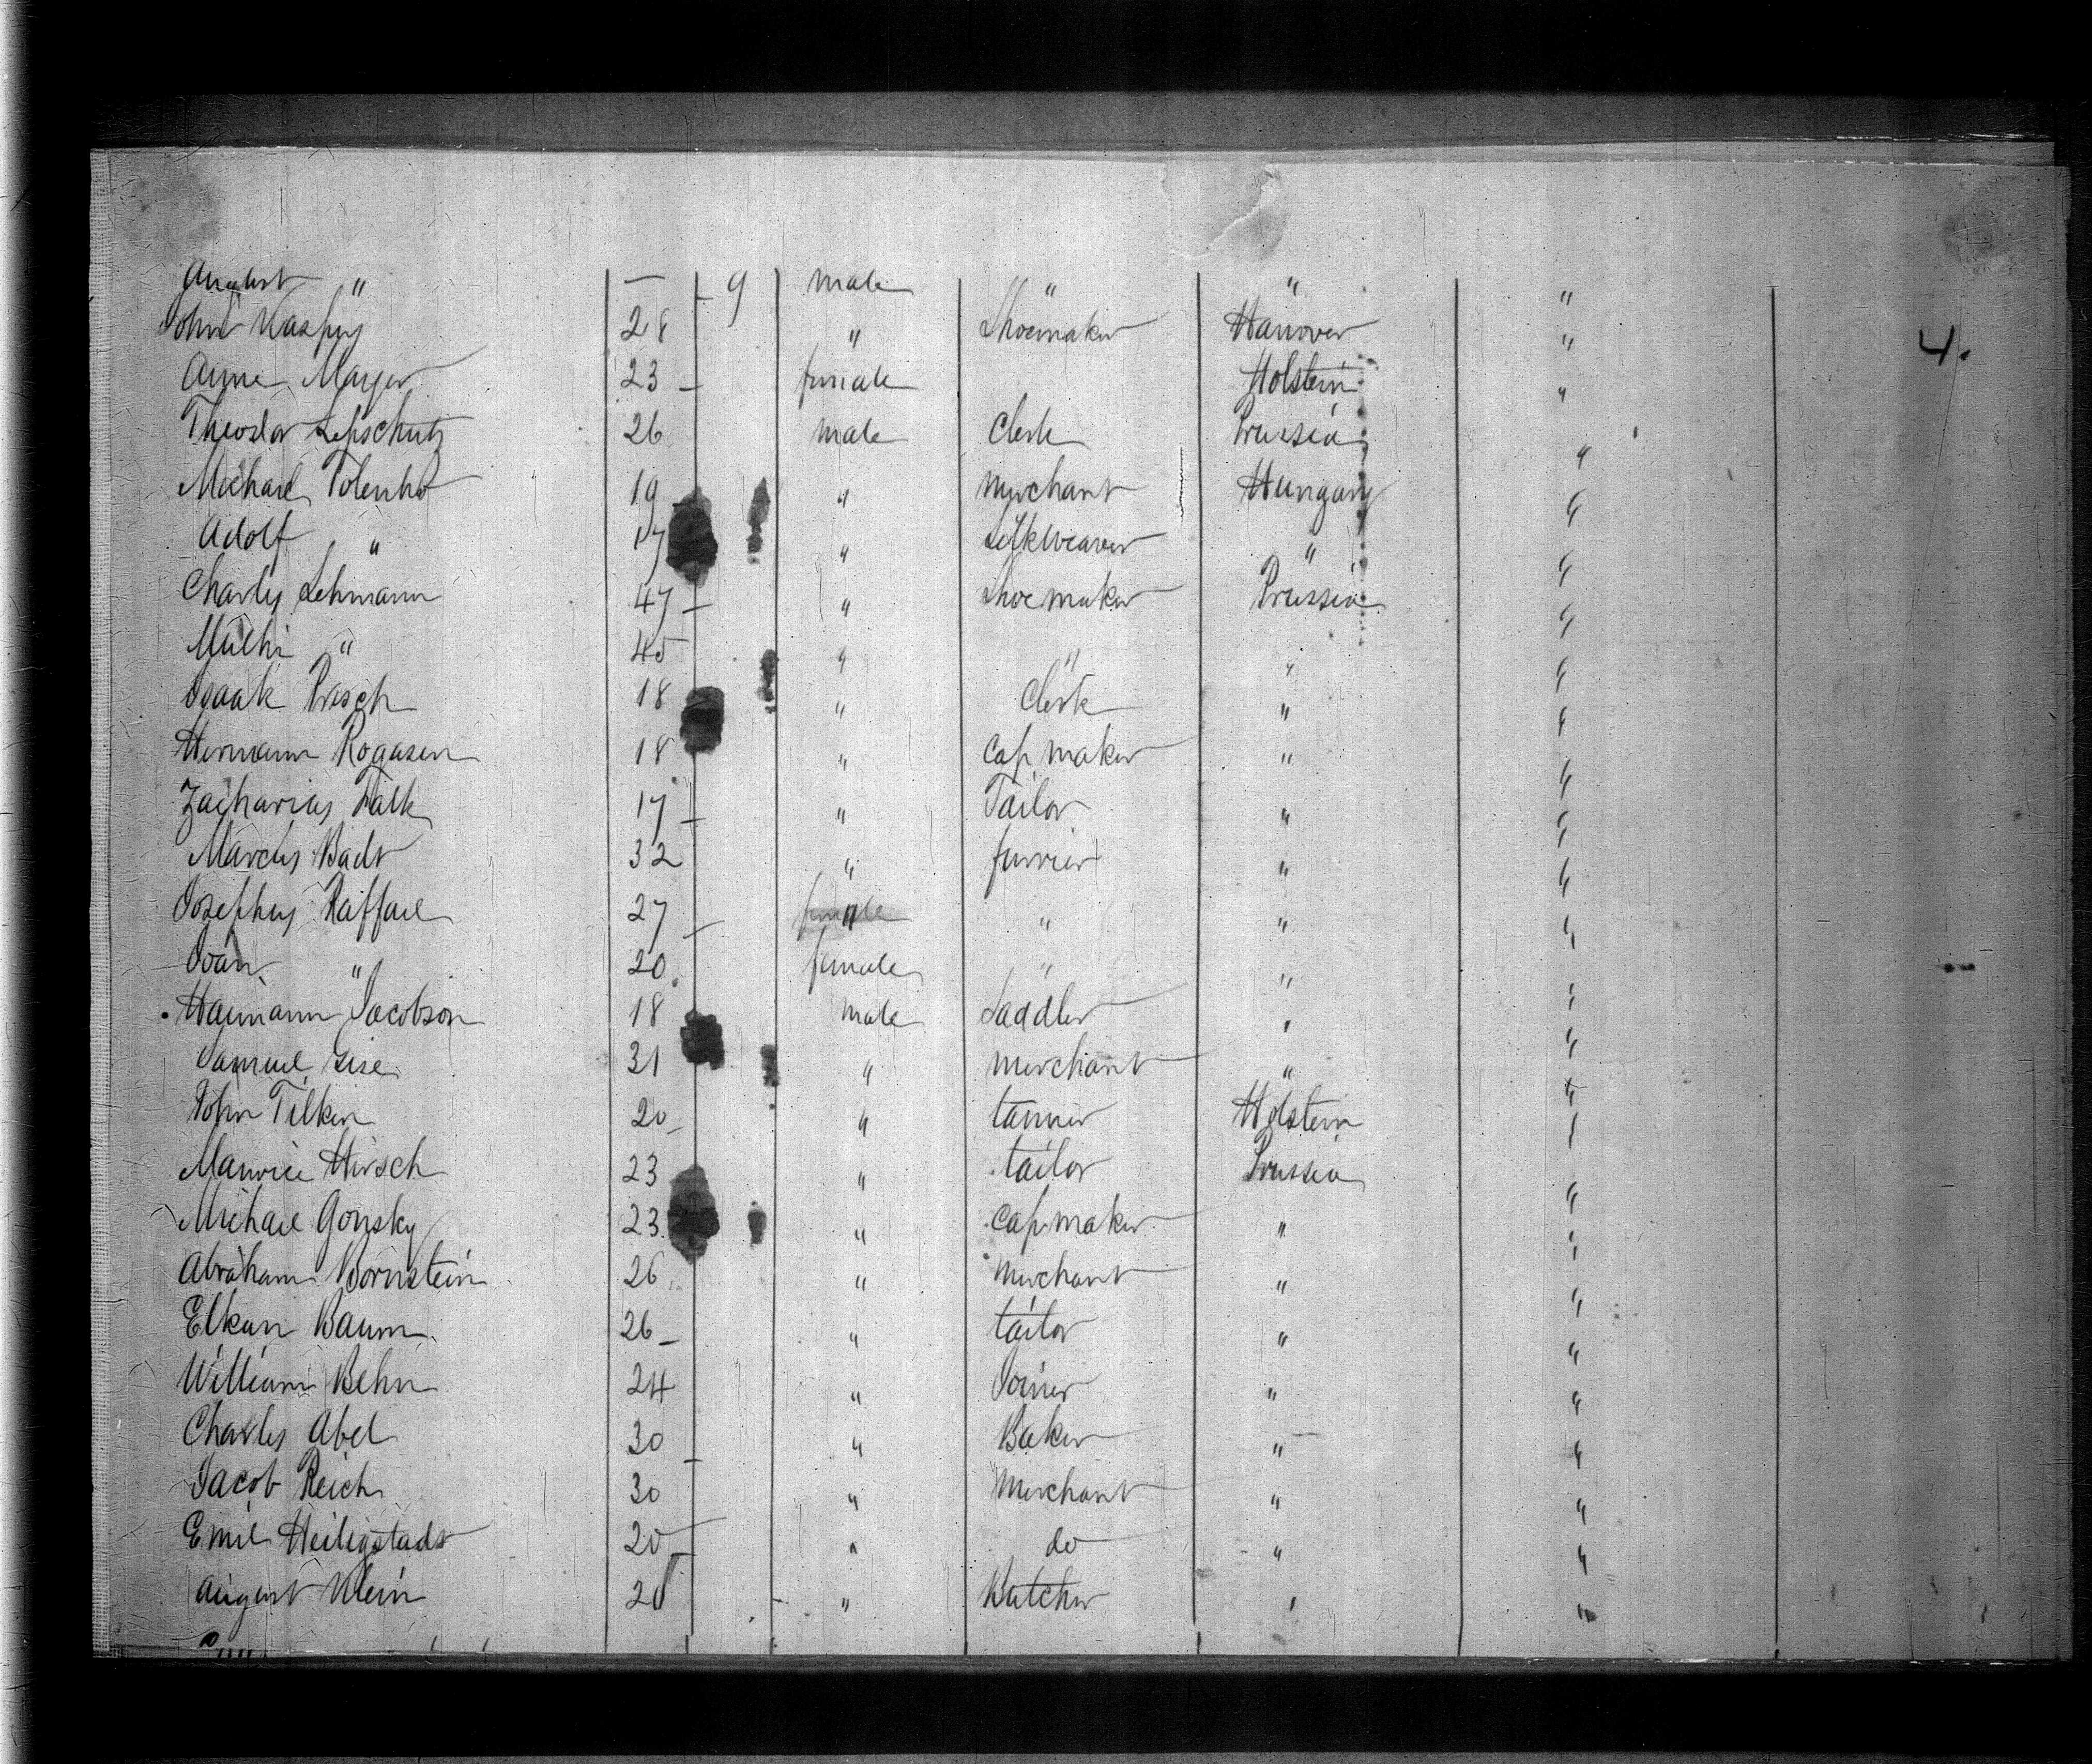 August " — 9 male " " "
John Kaspus 28 " Shoemaker Hanover " 4.
Anne Mayer 23 female Holstein "
Theodor Lipschutz 26 male Clerk Prussia "
Michael 19 " merchant Hungary "
Adolf " 17 " Silkweaver " "
Charles Lehmann 47 " Shoemaker Prussia "
" 45 " " " "
Isaak 18 " Clerk " "
Hermann Rogasen 18 " Cap maker " "
Zacharias Falk 17 " Tailor " "
Marcus Badt 32 " furrier " "
Josephus Raffael 27 " " " "
" 20 female " " "
Haimann Jacobson 18 male Saddler " "
Samuel 31 " merchant " "
John Tilken 20 " tanner Holstein "
Maurice Hirsch 23 " tailor Prussia "
Michael Gonsky 23 " Cap maker " "
Abraham Bornstein 26 " merchant " "
Elkan Baum 26 " tailor " "
William Behn 24 " Joiner " "
Charles Abel 30 " Baker " "
Jacob Reich 30 " Merchant " "
Emil Heiligstadt 20 " do " "
August Klein 20 " Butcher " "